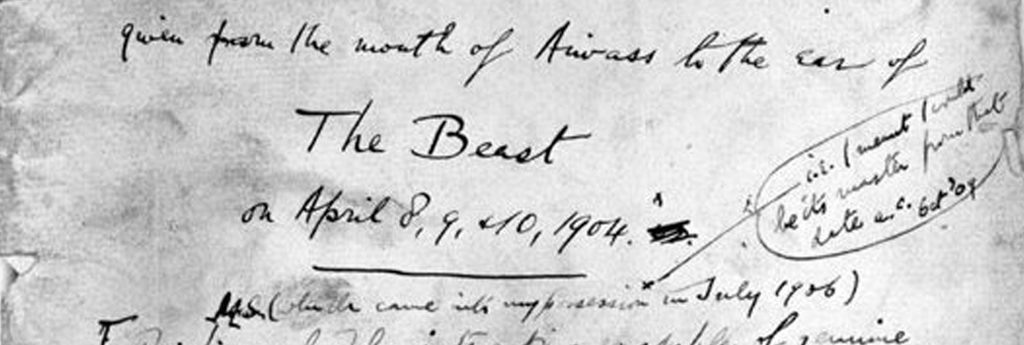 given from the mouth of Aiwass to the ear of
The Beast
on April 8, 9, & 10, 1904.
i.e. I meant I would
be its master from that
date Oct '09
MS. (which came into my possession in July 1906)
of genuine